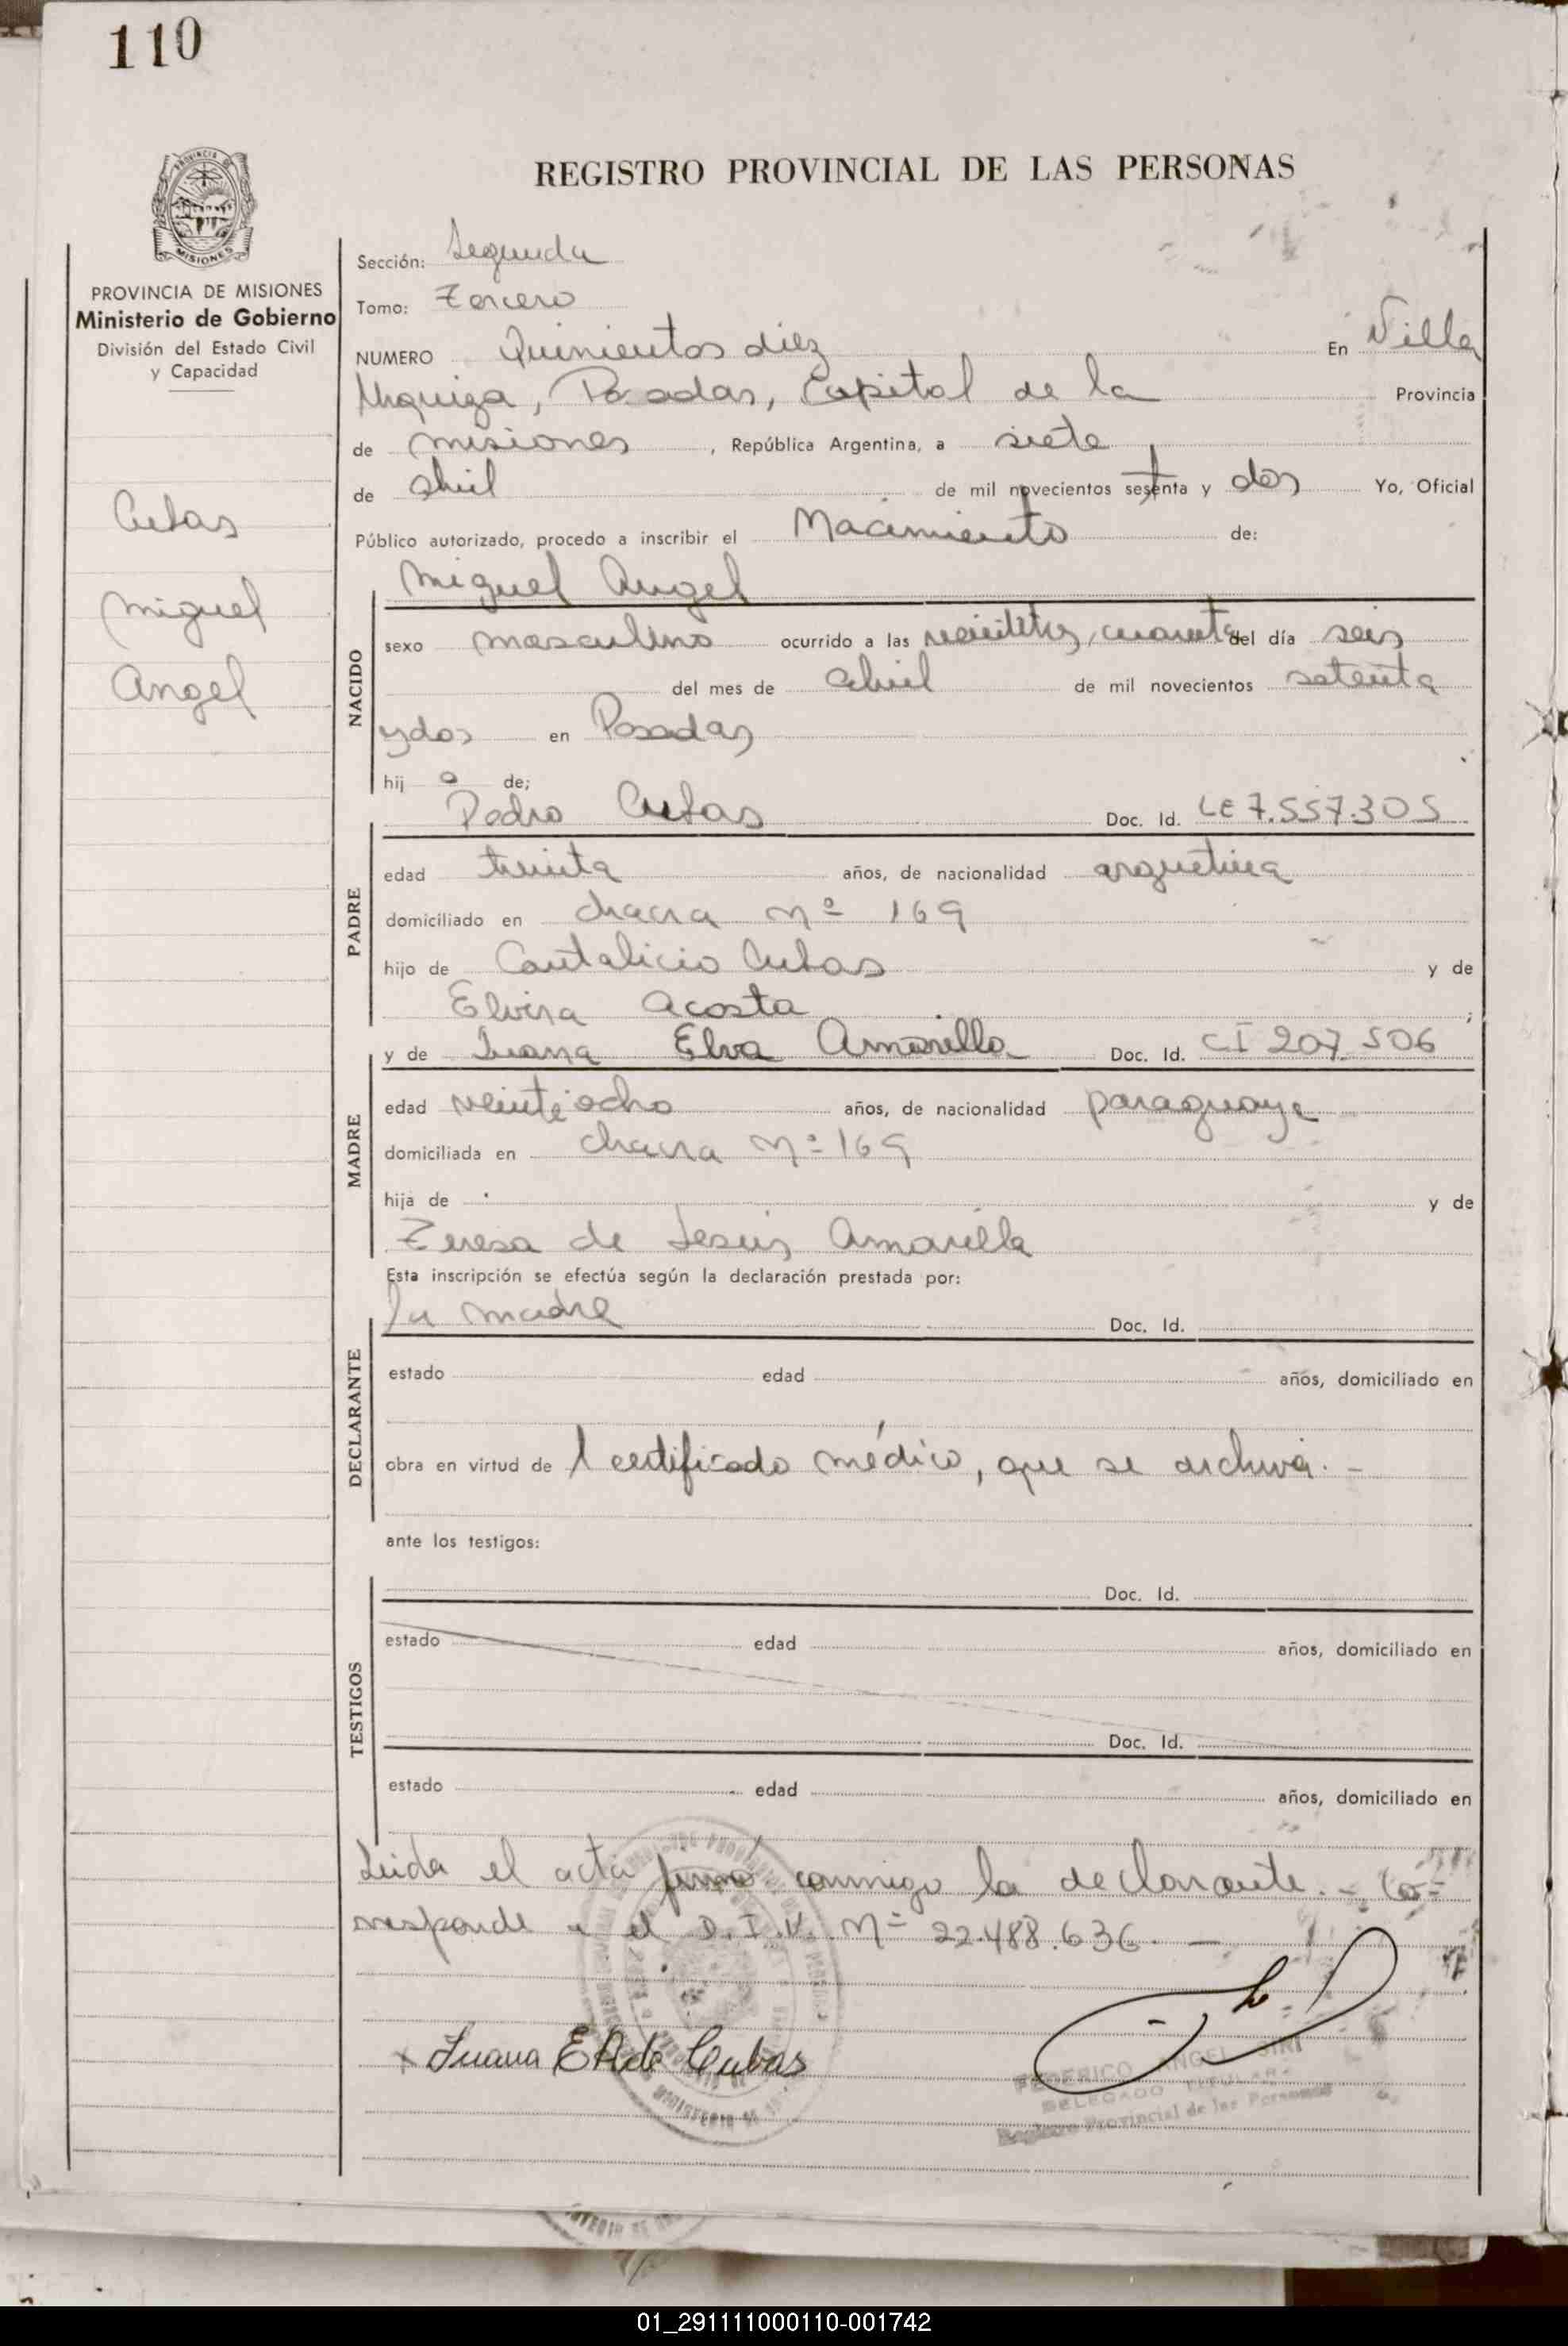 110
REGISTRO PROVINCIAL DE LAS PERSONAS
PROVINCIA DE
MISIONES
PROVINCIA DE MISIONES
Ministerio de Gobierno
División del Estado Civil
y Capacidad
Cubas
Miguel
Angel
Sección: Segunda
Tomo: Tercero
NUMERO Quinientos diez En Villa
Urquiza, Posadas, Capital de la Provincia
de misiones, República Argentina, a siete
de abril de mil novecientos setenta y dos Yo, Oficial
Público autorizado, procedo a inscribir el Nacimiento de:
Miguel Angel
NACIDO
sexo masculino ocurrido a las veintitres, cuarenta del día seis
del mes de abril de mil novecientos setenta
y dos en Posadas
hij o de;
Pedro Cubas Doc. Id. LE 7.557.305
PADRE
edad treinta años, de nacionalidad argentina
domiciliado en chacra nº 169
hijo de Cantalicio Cubas y de
Elvira Acosta;
y de Juana Elva Amarilla Doc. Id. CI 207.506
MADRE
edad veintiocho años, de nacionalidad paraguaya
domiciliada en chacra nº 169
hija de y de
Teresa de Jesús Amarilla
Esta inscripción se efectúa según la declaración prestada por:
la madre Doc. Id.
DECLARANTE
estado edad años, domiciliado en
obra en virtud de l certificado médico, que se archiva. -
ante los testigos:
Doc. Id.
TESTIGOS
estado edad años, domiciliado en
Doc. Id.
estado edad años, domiciliado en
Leida el acta firmó conmigo la declarante. - Co=
rresponde a el D.I.V. Nº 22.488.636. -
x Juana E A de Cubas
FEDERICO ANGEL
DELEGADO TITULAR
Registro Provincial de las Personas
01_291111000110-001742